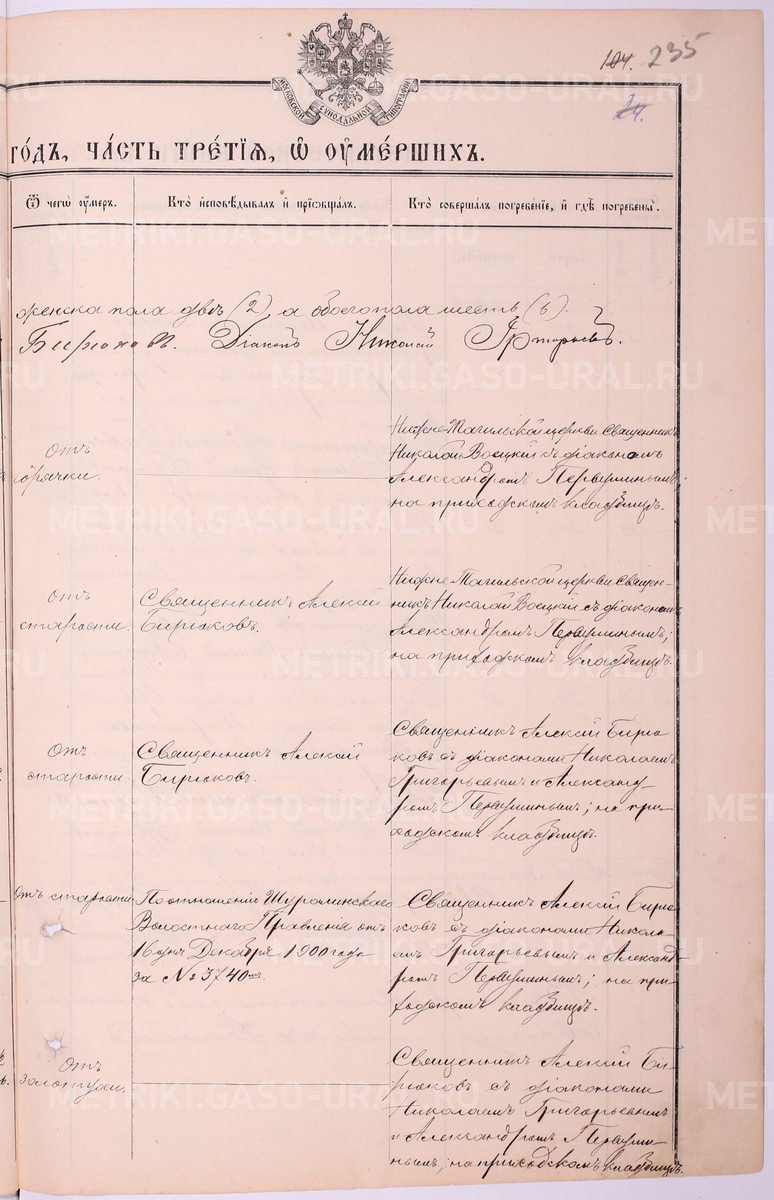 104. 235
24.
МОСКОВСКОЙ СѴНОДАЛЬНОЙ ТИПОГРАФІИ
го́дъ, ча́сть тре́тїѧ, ѡ҆ ᲂу҆ме́ршихъ.
Ѿ чегѡ̀ ᲂу҆́меръ.
Кто̀ и҆сповѣ́дывалъ и҆ прїѡбща́лъ.
Кто̀ соверша́лъ погребе́нїе, и҆ гдѣ̀ погребены̀.
женска пола двѣ (2), а обоего пола шесть (6).
Бирюковъ. Діаконъ Николай Григорьевъ.
Отъ
горячки.
Нижне-Тагильской церкви Священникъ
Николай Воецкій съ діакономъ
Александромъ Первушинымъ;
на приходскомъ кладбищѣ.
Отъ
старости.
Священникъ Алексій
Бирюковъ.
Нижне-Тагильской церкви Священ-
никъ Николай Воецкій съ діакономъ
Александромъ Первушинымъ;
на приходскомъ кладбищѣ.
Отъ
старости
Священникъ Алексій
Бирюковъ.
Священникъ Алексій Бирю-
ковъ съ діаконами Николаемъ
Григорьевымъ и Александ-
ромъ Первушинымъ; на при-
ходскомъ кладбищѣ.
Отъ старости
По отношенію Шуралинскаго
Волостнаго Правленія отъ
16 дня Декабря 1900 года
за № 3740мъ
Священникъ Алексій Бирю-
ковъ съ діаконами Никола-
емъ Григорьевымъ и Александ-
ромъ Первушинымъ; на при-
ходскомъ кладбищѣ.
Отъ
золотухи.
Священникъ Алексій Би-
рюковъ съ діаконами
Николаемъ Григорьевымъ
и Александромъ Первуши-
нымъ; на приходскомъ кладбищѣ.
METRIKI.GASO-URAL.RU